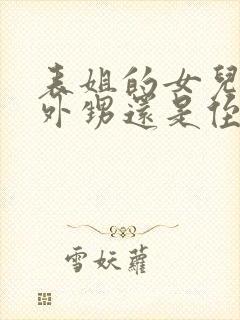 表姐的女兒
外甥還是侄
雪妖蘿